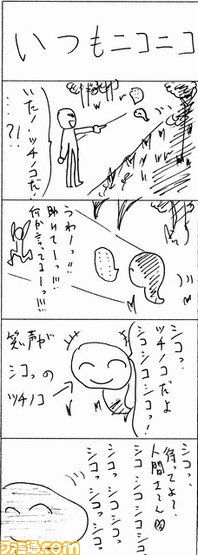 いつもニコニコ
いた！ツチノコだ！
…?!
うわーっ!!
助けてーっ!!!
何か言ってるーっ!!!
シコっ、
ツチノコだよ
シコシコシコっ！
笑い声が
シコっの
ツチノコ
シコっ、
待ってよ？
人間さ～ん
シコっシコっシコっ
シコっシコっシコっ
ファミ通.com